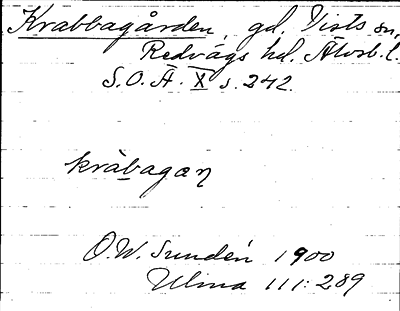 Krabbagården, gd. Vists sn,
Redvägs hd. Älvsb. l.
S.O.Ä. X s. 242.
kràbagaɳ
O.W. Sundén 1900
Ulma 111: 289